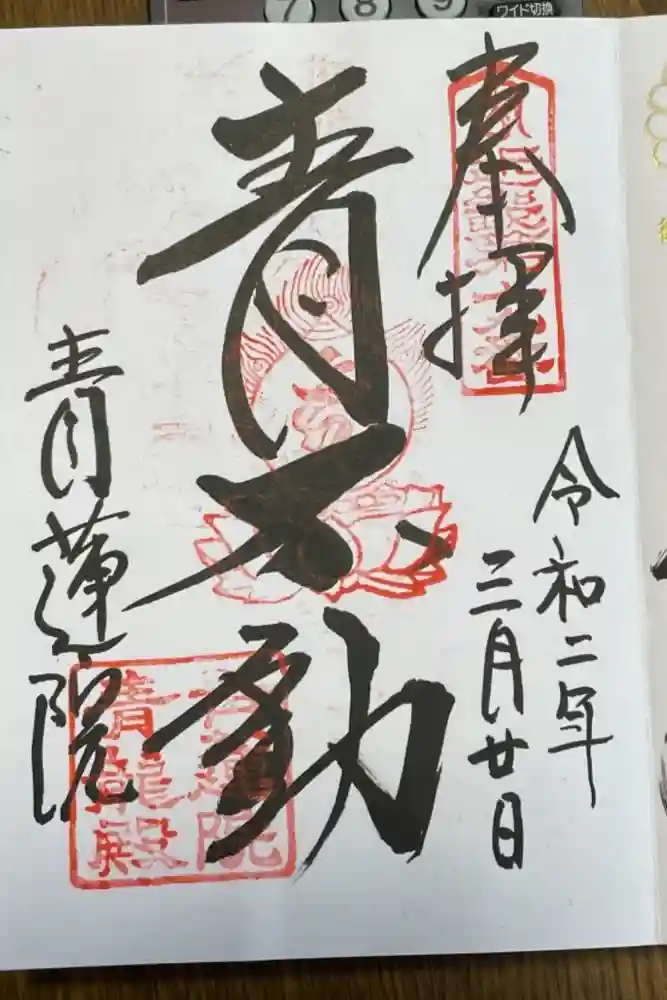 7 8 9 ワイド切換
奉拝
令和二年
三月廿日
青不動
青蓮院
青蓮院
青龍殿